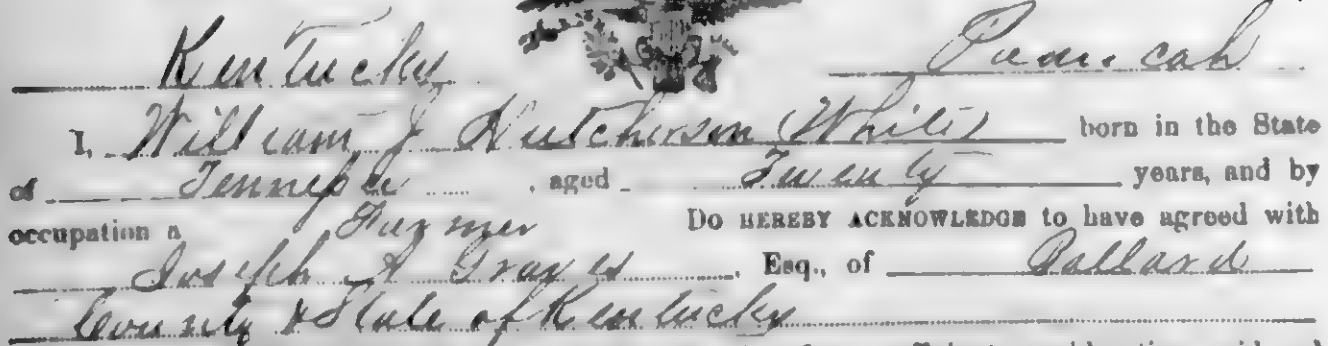 Kentucky Paducah
I, William J Hutcherson (White) born in the State
of Tennessee, aged Twenty years, and by
occupation a Farmer Do HEREBY ACKNOWLEDGE to have agreed with
Joseph A Graves Esq., of Ballard
County & State of Kentucky